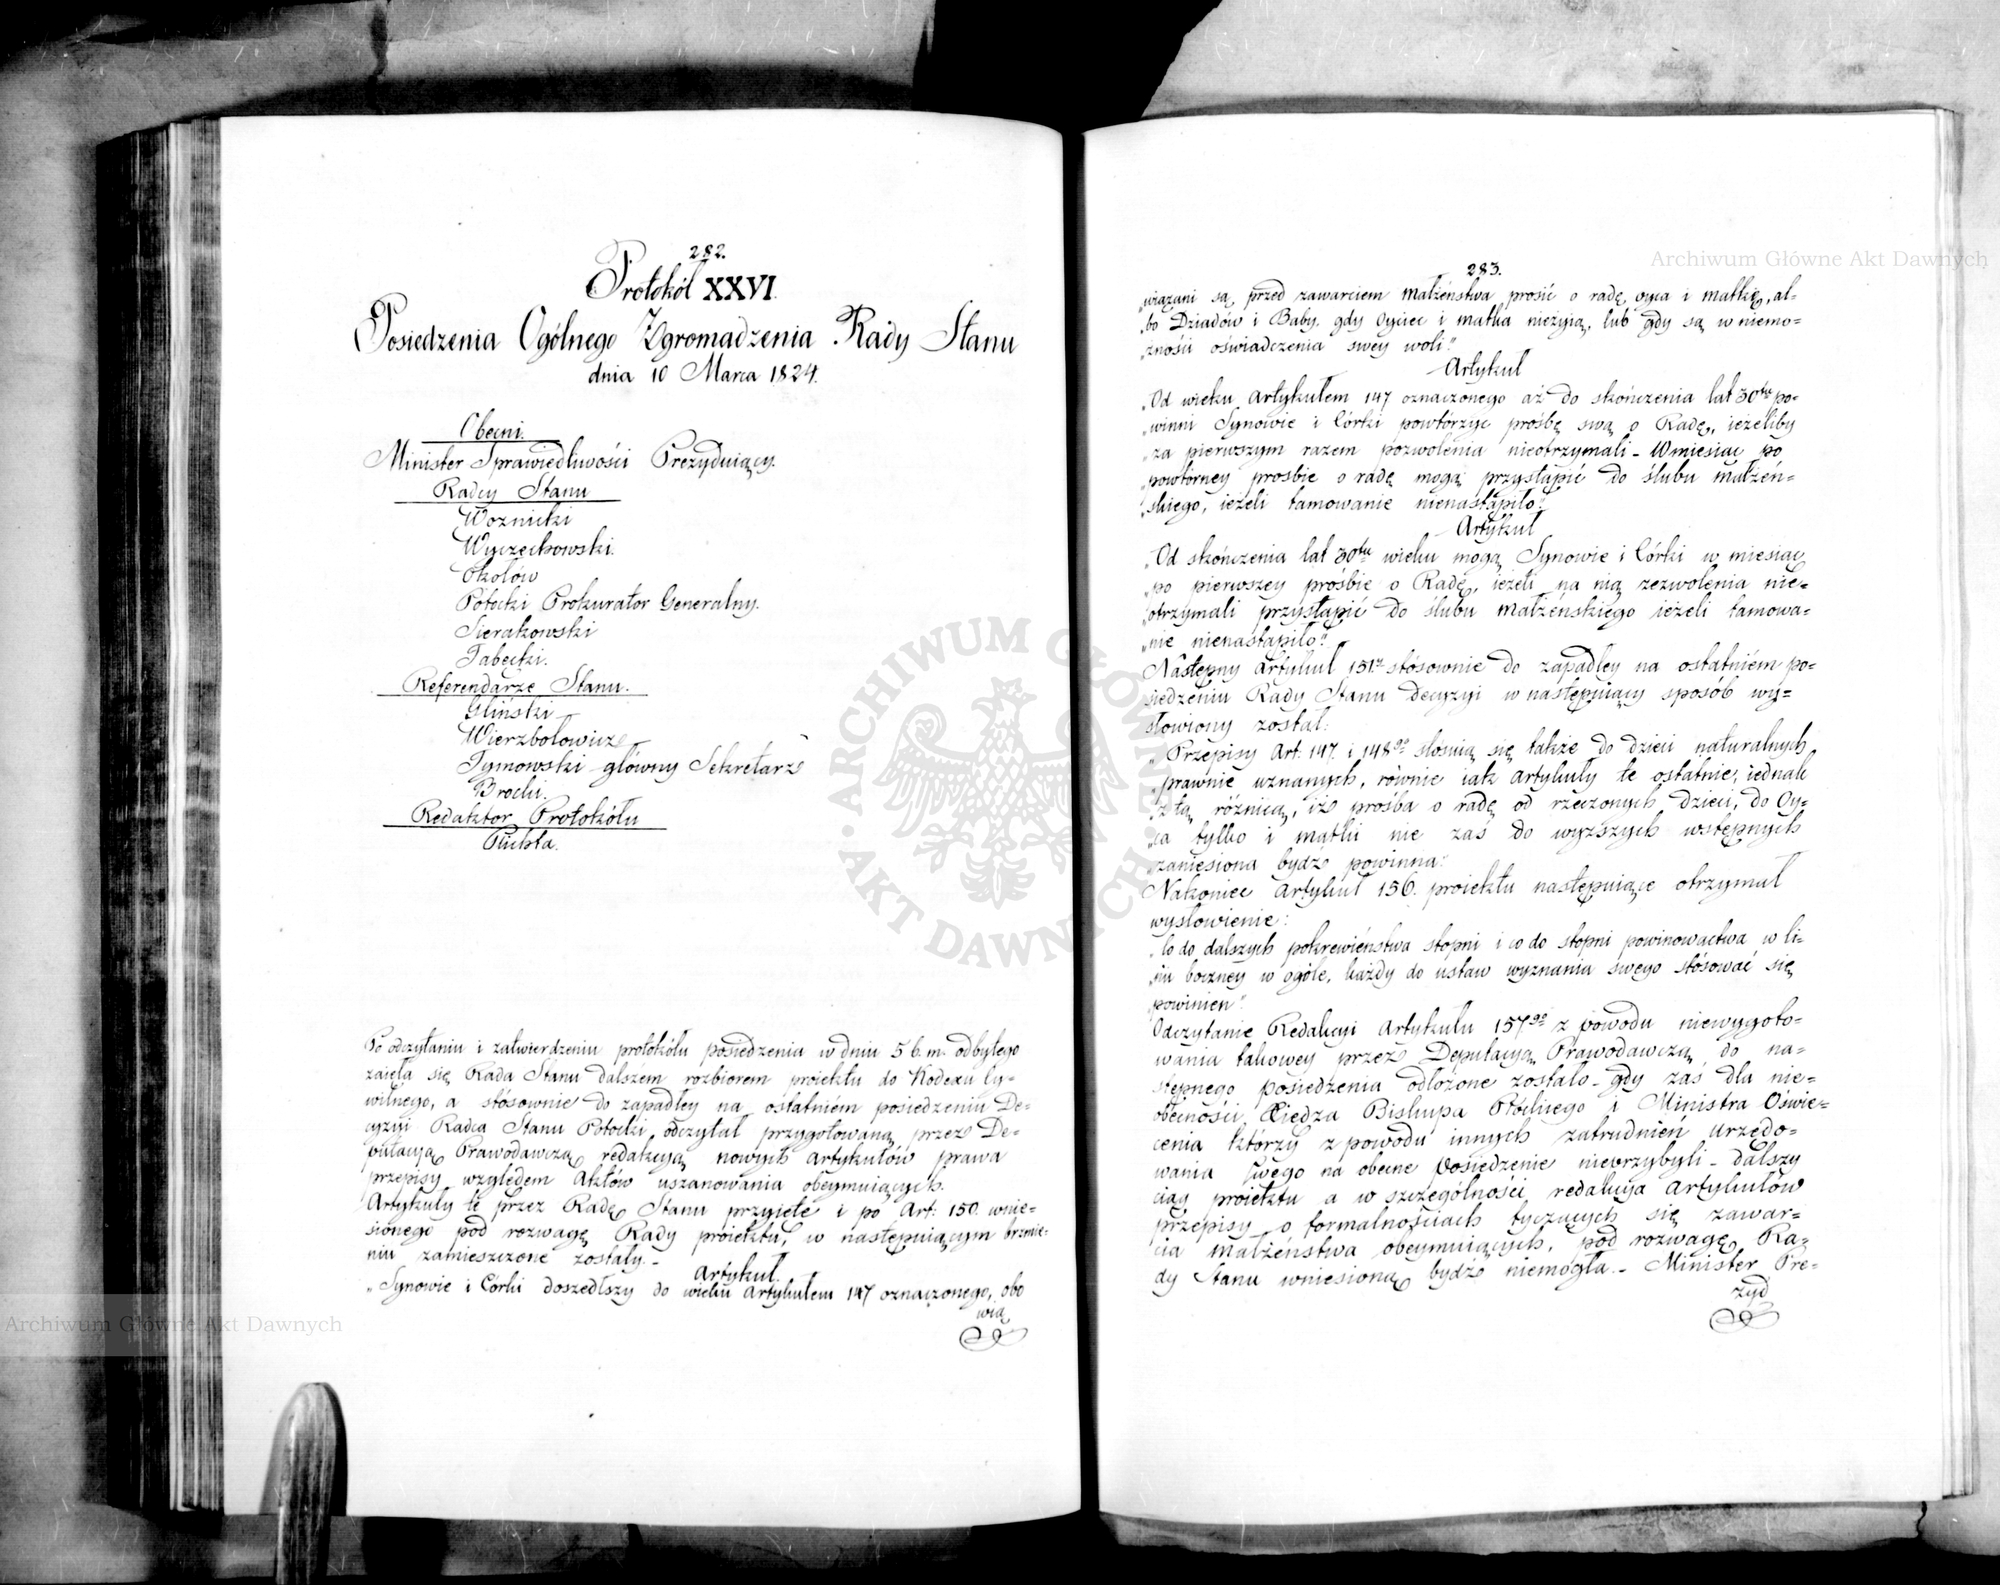 282.
Protokół XXVI.
Posiedzenia Ogólnego Zgromadzenia Rady Stanu
dnia 10 Marca 1824.
Obecni.
Minister Sprawiedliwości Prezyduiący.
Radcy Stanu
Woznicki
Wyczechowski.
Okołów
Potocki Prokurator Generalny.
Sierakowski
Tabęcki.
Referendarze Stanu.
Gliński
Wierzbołowicz
Tymowski główny Sekretarz
Brocki.
Redaktor Protokółu
Plichta.
Po odczytaniu i zatwierdzeniu protokółu posiedzenia w dniu 5 b. m. odbytego
zaięła się Rada Stanu dalszem rozbiorem proiektu do Kodexu Cy-
wilnego, a stósownie do zapadłey na ostatniém posiedzeniu De-
cyzyi Radca Stanu Potocki odczytał przygotowaną przez De-
putacyą Prawodawczą redakcyą nowych artykułów prawa
przepisy względem Aktów uszanowania obeymuiących.
Artykuły te przez Radę Stanu przyięte i po Art: 150. wnie-
sionego pod rozwagę Rady proiektu, w następuiącym brzmie-
niu zamieszczone zostały.-
Artykuł.
„Synowie i Córki doszedłszy do wieku Artykułem 147 oznaczonego, obo
wią
283.
„wiązani są przed zawarciem małżeństwa prosić o radę oyca i matkę, al-
„bo Dziadów i Baby, gdy oyciec i matka nieżyią, lub gdy są w niemo-
„żności oświadczenia swey woli."
Artykuł
„Od wieku Artykułem 147 oznaczonego aż do skończenia lat 30tu po-
„winni Synowie i Córki powtórzyć prośbę swą o Radę, ieżeliby
„za pierwszym razem pozwolenia nieotrzymali - W miesiąc po
„powtórney prośbie o radę mogą przystąpić do ślubu małżeń-
„skiego, ieżeli tamowanie nienastąpiło."
Artykuł
„Od skończenia lat 30tu wieku mogą Synowie i Córki w miesiąc
„po pierwszey prośbie o Radę, ieżeli na nią zezwolenia nie-
„otrzymali przystąpić do ślubu małżeńskiego ieżeli tamowa-
„nie nienastąpiło."
Następny Artykuł 151. stósownie do zapadłey na ostatniém po-
siedzeniu Rady Stanu Decyzyi w następuiący sposób wy-
słowiony został:
„Przepisy Art. 147. i 148go stósuią się także do dzieci naturalnych
„prawnie uznanych, równie iak Artykuły te ostatnie; iednak
„z tą różnicą, iż prośba o radę od rzeczonych dzieci, do Oy-
„ca tylko i matki nie zaś do wyższych wstępnych
„zaniesiona bydź powinna."
Nakoniec Artykuł 156. proiektu następuiące otrzymał
wysłowienie:
„Co do dalszych pokrewieństwa stopni i co do stopni powinowactwa w li-
„nii boczney w ogóle, każdy do ustaw wyznania swego stósować się
„powinien".
Odczytanie Redakcyi Artykułu 157go z powodu niewygoto-
wania takowey przez Deputacyą Prawodawczą do na-
stępnego posiedzenia odłożone zostało - gdy zaś dla nie-
obecności Xiędza Biskupa Płóckiego i Ministra Oświe-
cenia którzy z powodu innych zatrudnień urzędo-
wania swego na obecne posiedzenie nieprzybyli - dalszy
ciąg proiektu a w szczególności redakcyja Artykułów
przepisy o formalnościach tyczących się zawar-
cia małżeństwa obeymuiących, pod rozwagę Ra-
dy Stanu wniesioną bydź niemogła. - Minister Pre-
zyd
Archiwum Główne Akt Dawnych
Archiwum Główne Akt Dawnych
ARCHIWUM GŁÓWNE AKT DAWNYCH